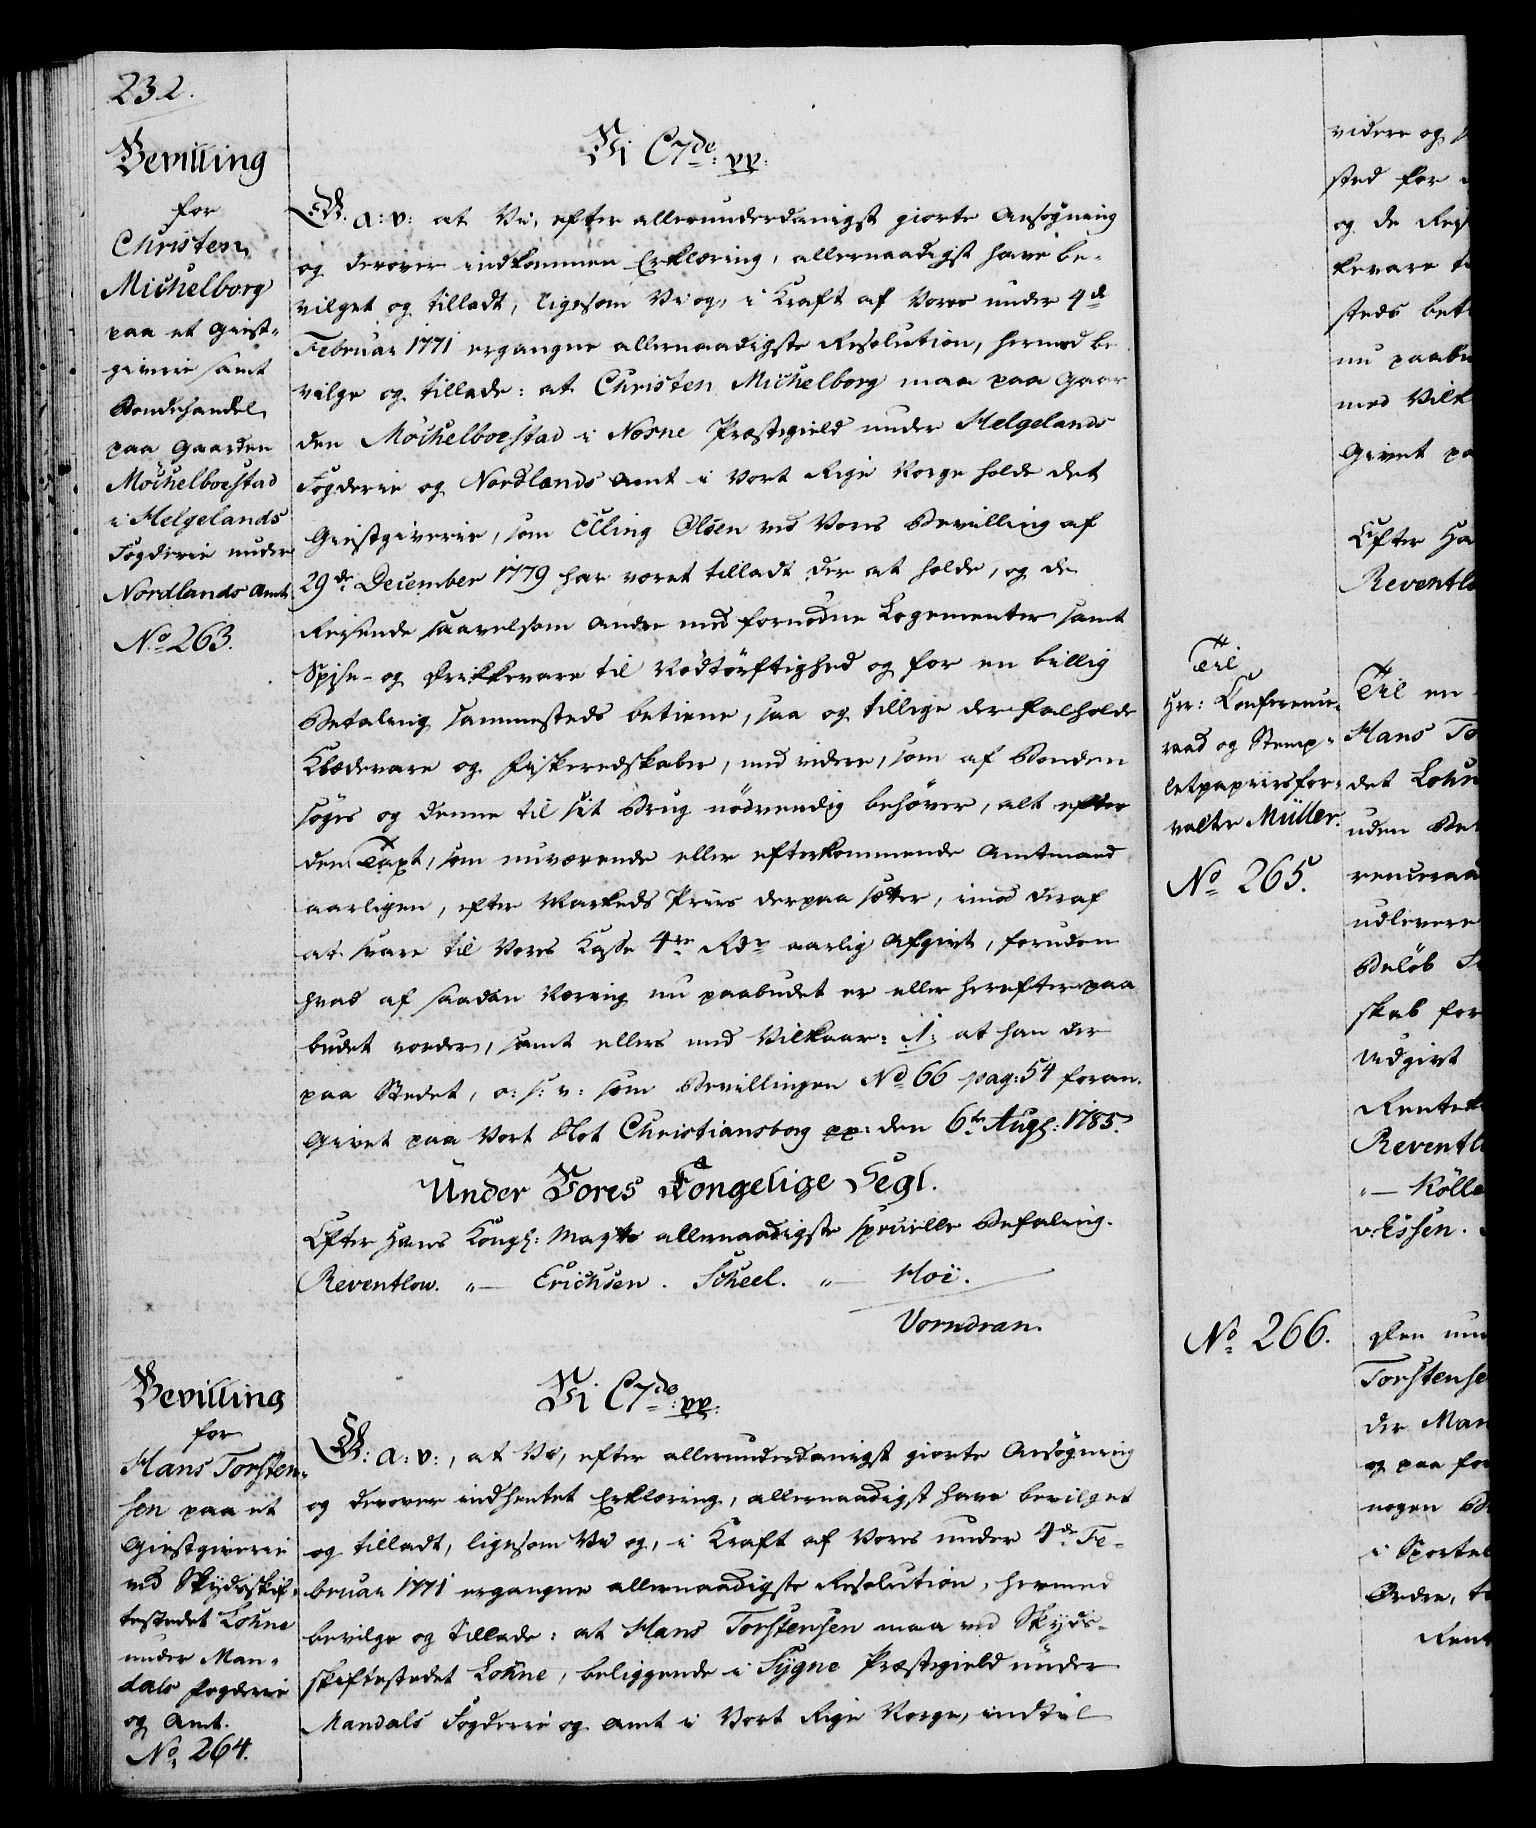 232.
Bevilling
for
Christen
Michelborg
paa et Giest-
giverie samt
Bondehandel
paa Gaarden
Möchelboestad
i Helgelands
Fogderie under
Nordlands Amt.
No 263.
Vi C7de: pp:
G: a: v: at Vi, efter allerunderdanigst giorte Ansøgning
og derover indkommen Erklæring, allernaadigst have be-
vilget og tilladt, ligesom Vi og, i Kraft af Vores under 4de
Februar 1771 ergangne allernaadigste Resolution, hermed be
vilge og tillade: at Christen Michelborg maa paa Gaar
den Möchelboestad i Nesne Præstegield under Helgelands
Fogderie og Nordlands Amt i Vort Rige Norge holde det
Giestgiverie, som Elling Olsen ved Vores Bevilling af
29de December 1779 har været tilladt der at holde, og de
Reisende saavelsom Andre med fornødne Logementer samt
Spise- og Drikkevare til Nödtörftighed og for en billig
Betaling sammesteds betiene, saa og tillige der falholde
Klædevare og Fiskeredskaber, med videre, som af Bonden
söges og denne til sit Brug nödvendig behøver, alt efter
den Taxt, som nuværende eller efterkommende Amtmand
aarligen, efter Markeds Priis derpaa sætter, imod deraf
at svare til Vores Kasse 4re Rdr aarlig Afgivt, foruden
hvad af saadan Næring nu paabudet er eller herefter paa
budet vorder, samt ellers med Vilkaar: 1: at han der
paa Stedet, o: s: v: som Bevillingen No 66 pag: 54 foran.
Givet paa Vort Slot Christiansborg pp: den 6te Augs: 1785.
Under Vores Kongelige Segl.
Efter Hans Kongl: Mayts allernaadigste specielle Befaling.
Reventlow. „— Erichsen. Scheel. „— Hoë.
Vorndran.
Bevilling
for
Hans Torsten-
sen paa et
Giestgiverie
ved Skydsskif-
testedet Lohne
under Man-
dals Fogderie
og Amt.
No 264.
Vi C7de: pp:
G: a: v:, at Vi, efter allerunderdanigst giorte Ansøgning
og derover indhentet Erklæring, allernaadigst have bevilget
og tilladt, ligesom Vi og, i Kraft af Vores under 4de Fe-
bruar 1771 ergangne allernaadigste Resolution, hermed
bevilge og tillade: at Hans Torstensen maa ved Skyds-
skiftestedet Lohne, beliggende i Sygne Præstegield under
Mandals Fogderie og Amt i Vort Rige Norge, indtil
Til
Hr: Conference-
raad og Stemp-
letpapiirsfor-
valter Müller.
No 265.
No 266.
videre og
sted for
og de Rei
kevare
steds bet
nu paabu
med Vilk
Givet pa
Efter Ha
Reventlo
Til en
Hans To
det Lohn
uden Be
renceraa
udlevere
Beløb
skab for
Udgivt
Rentek
Reventl
„— Rölle
v: Essen.
Den
Torstense
der Man
og paa for
nogen
i Sportel
Ordre,
Rent